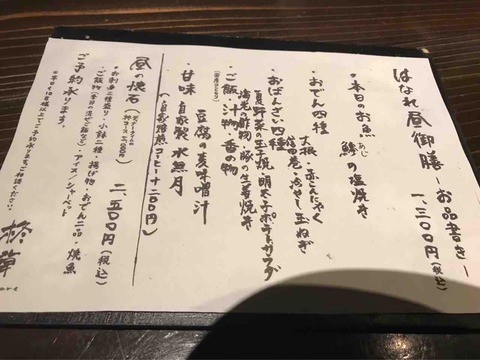 はなれ昼御膳 ーお品書きー
一、三〇〇円(税込)
・本日のお魚 鯵の塩焼き
あじ
・おでん四種
大根・赤こんにゃく
・冷やし玉ねぎ
・おばんざい四種
夏野菜の玉子焼・明太子ポテトサラダ
・豚の生姜焼き
・ご飯・汁物・香の物
豆腐の麦味噌汁
・甘味 自家製 水無月
(自家焙煎コーヒー+二〇〇円)
昼の懐石
二、五〇〇円(税込)
・お刺身三種盛り・小鉢二種・揚げ物・おでん二品・焼魚
・ご飯物(本日の混ぜご飯など)・アイス/シャーベット
ご予約承ります。